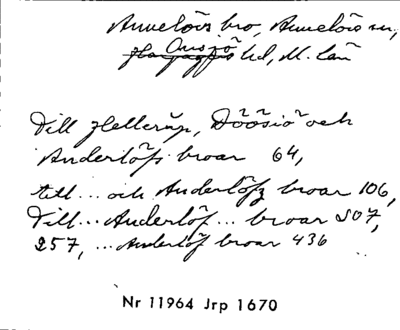 Annelövs bro, Annelövs sn,
Onsjö hd, M. län
Till Hellerup, Döösiö och
Anderlöfs broar 64,
till... och Anderlöfz broar 106,
Till... Anderlöf... broar 207,
257, ... Anderlöf broar 436
Nr 11964 Jrp 1670